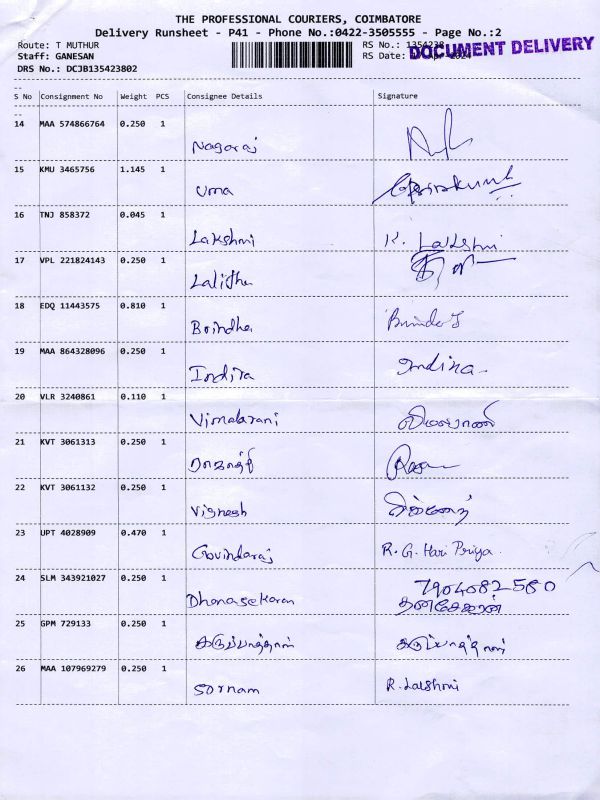 THE PROFESSIONAL COURIERS, COIMBATORE
Delivery Runsheet - P41 - Phone No.:0422-3505555 - Page No.:2
Route: T MUTHUR
RS No.:
DOCUMENT DELIVERY
Staff: GANESAN
RS Date:
DRS No.: DCJB135423802
--
S No Consignment No Weight PCS Consignee Details Signature
--
14 MAA 574866764 0.250 1
Nagaraj
15 KMU 3465756 1.145 1
Uma
16 TNJ 858372 0.045 1
Lakshmi K. Lakshmi
17 VPL 221824143 0.250 1
Lalitha
18 EDQ 11443575 0.810 1
Brindha
19 MAA 864328096 0.250 1
Indira Indira
20 VLR 3240861 0.110 1
Vimalarani விமலாராணி
21 KVT 3061313 0.250 1
22 KVT 3061132 0.250 1
Vignesh
23 UPT 4028909 0.470 1
Govindaraj R. G. Hari Priya.
24 SLM 343921027 0.250 1
7904082580
Dhanasekaran தனசேகரன்
25 GPM 729133 0.250 1
கருப்பாத்தாள் கருப்பாத்தாள்
26 MAA 107969279 0.250 1
Sornam R. Lakshmi